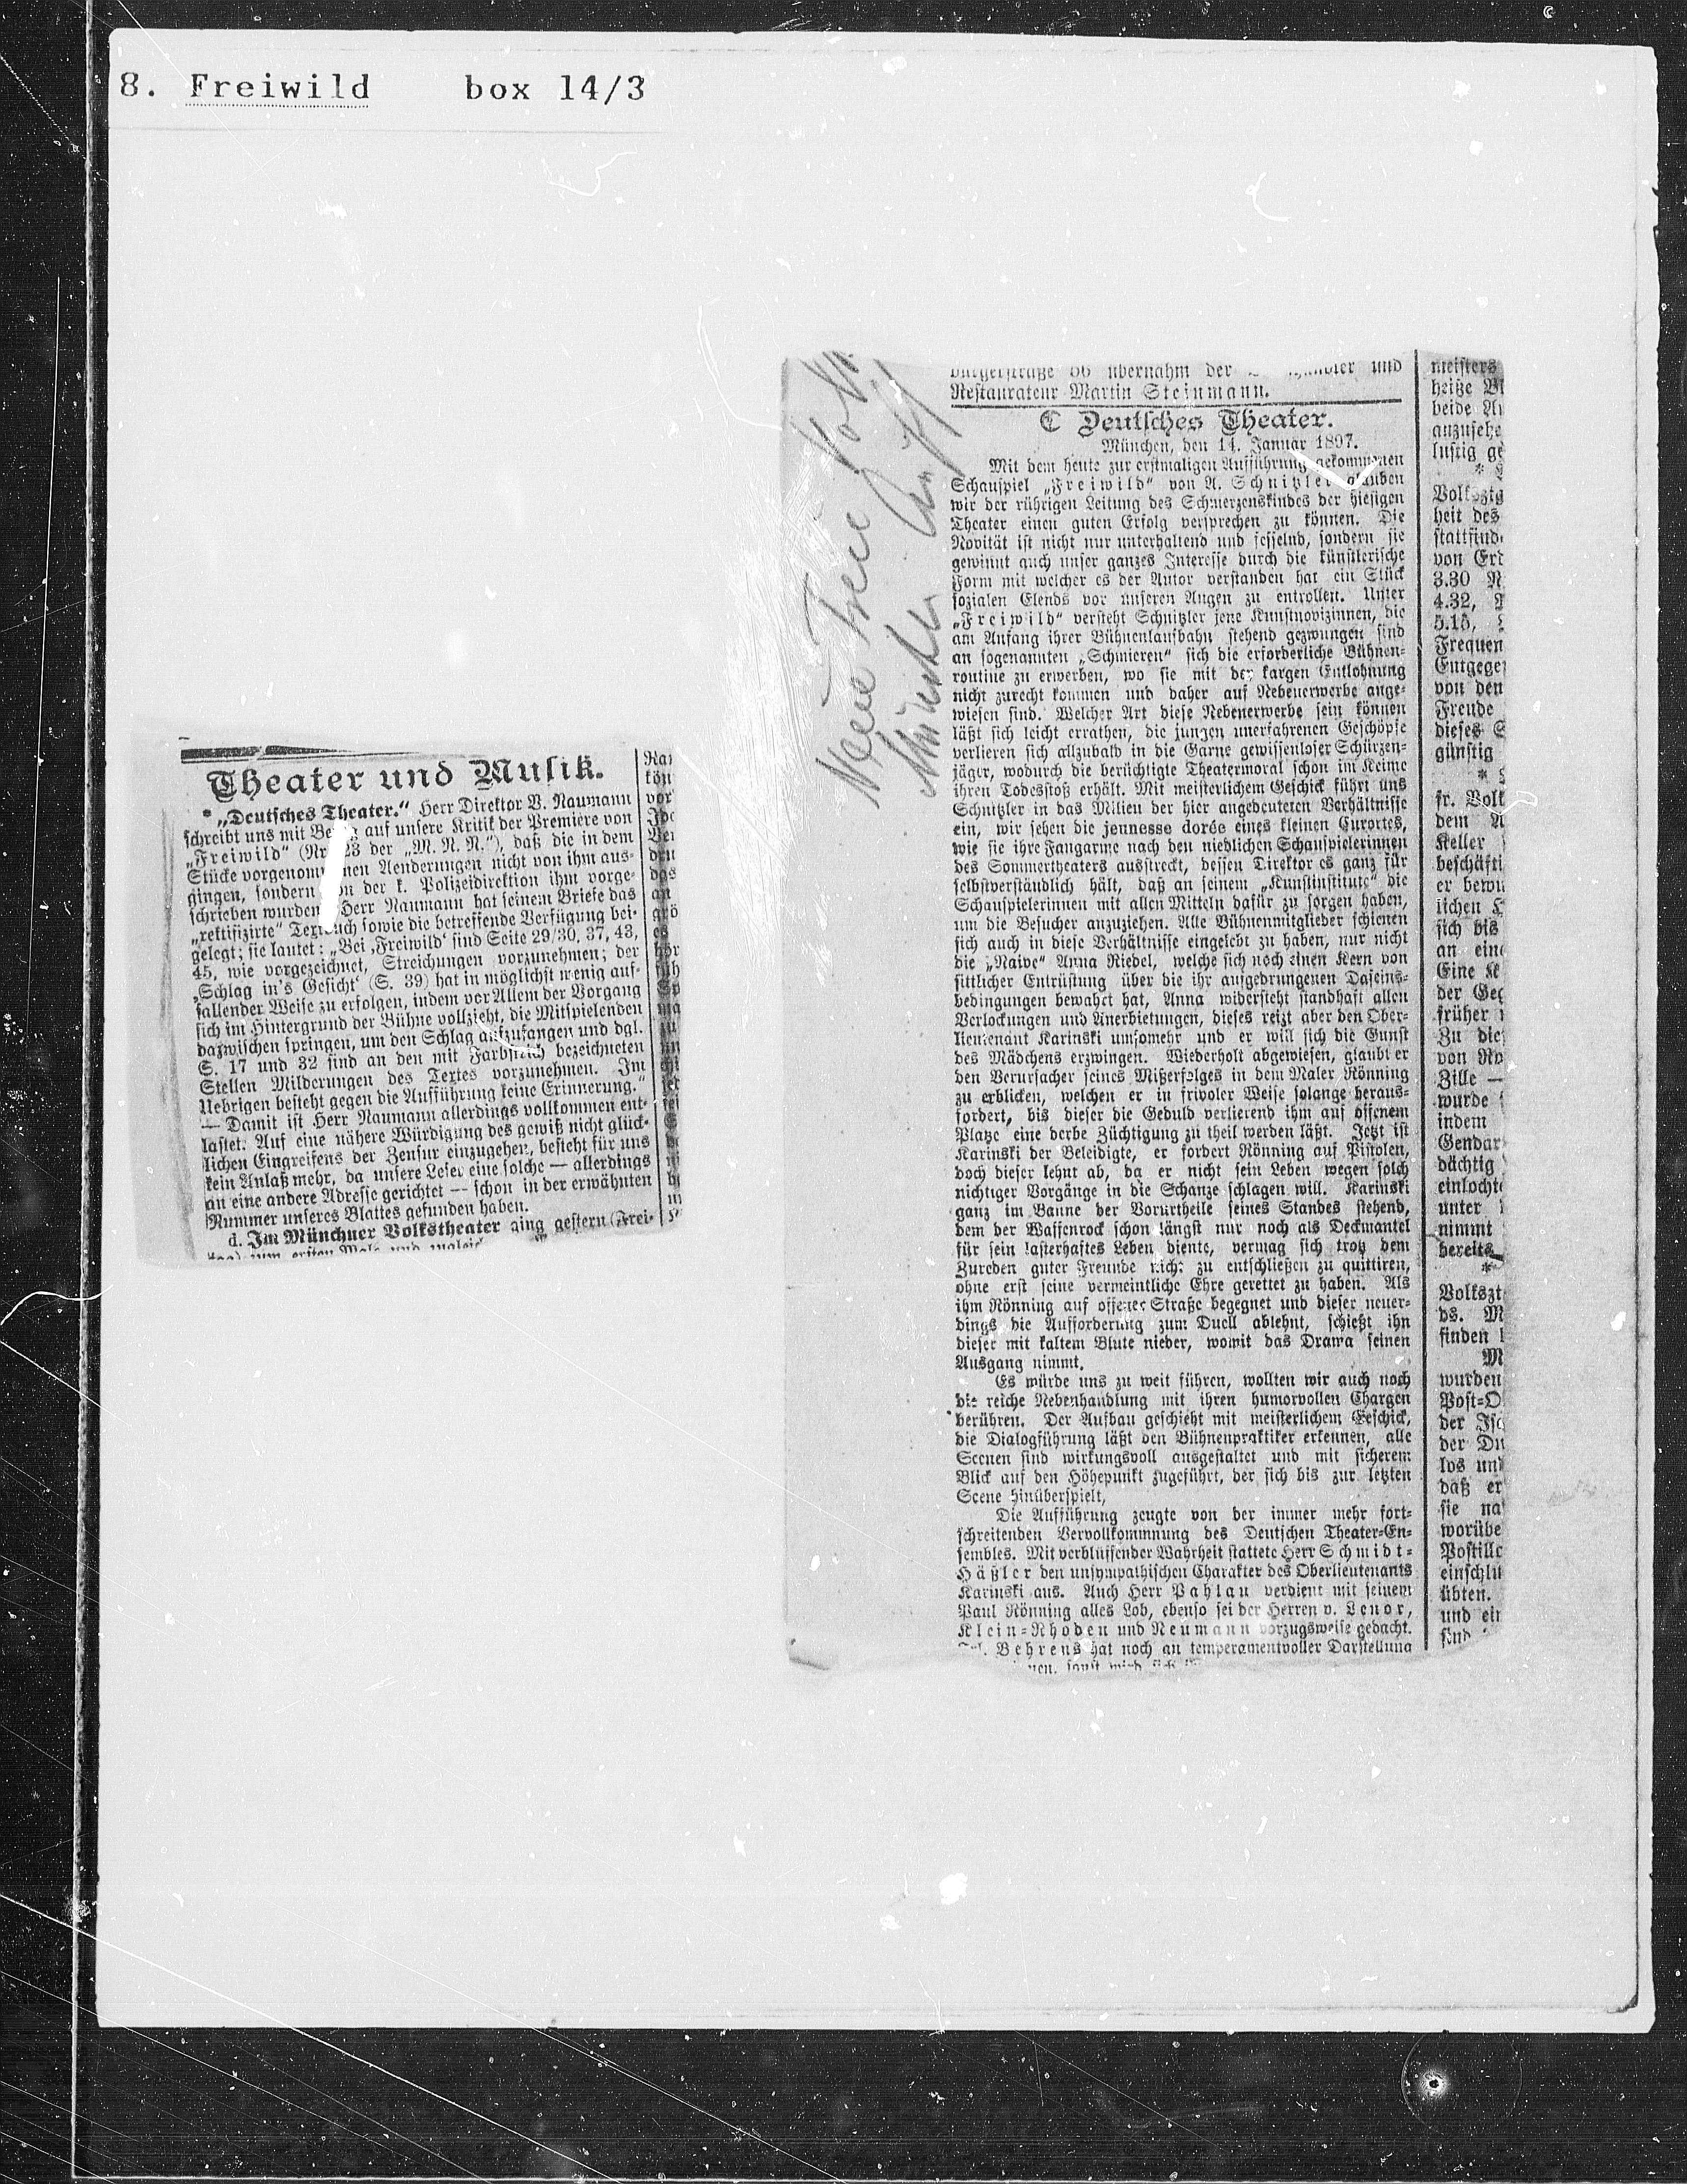 8. Freiwild box 14/3
Theater und Musik.
* „Deutsches Theater.“ Herr Direktor V. Naumann
schreibt uns mit auf unsere Kritik der Premiere von
„Freiwild“ (Nr. 23 der „M. N. N.“), daß die in dem
Stücke vorgenommenen Aenderungen nicht von ihm aus-
gingen, sondern von der k. Polizeidirektion ihm vorge-
schrieben wurden. Herr Naumann hat seinem Briefe das
„rektifizirte“ Textbuch sowie die betreffende Verfügung bei-
gelegt; sie lautet: „Bei ‚Freiwild‘ sind Seite 29/30, 37, 43,
45, wie vorgezeichnet, Streichungen vorzunehmen; der
‚Schlag in's Gesicht‘ (S. 39) hat in möglichst wenig auf-
fallender Weise zu erfolgen, indem vor Allem der Vorgang
sich im Hintergrund der Bühne vollzieht, die Mitspielenden
dazwischen springen, um den Schlag aufzufangen und dgl.
S. 17 und 32 sind an den mit Farbstrich bezeichneten
Stellen Milderungen des Textes vorzunehmen. Im
Uebrigen besteht gegen die Aufführung keine Erinnerung.“
— Damit ist Herr Naumann allerdings vollkommen ent-
lastet. Auf eine nähere Würdigung des gewiß nicht glück-
lichen Eingreifens der Zensur einzugehen, besteht für uns
kein Anlaß mehr, da unsere Leser eine solche — allerdings
an eine andere Adresse gerichtet — schon in der erwähnten
Nummer unseres Blattes gefunden haben.
d. Im Münchner Volkstheater ging gestern (Frei-
Neue Freie
übernahm der und
Restaurateur Martin Steinmann.
Deutsches Theater.
München, den 14. Januar 1897.
Mit dem heute zur erstmaligen Aufführung gekommenen
Schauspiel „Freiwild“ von A. Schnitzler glauben
wir der rührigen Leitung des Schmerzenskindes der hiesigen
Theater einen guten Erfolg versprechen zu können. Die
Novität ist nicht nur unterhaltend und fesselnd, sondern sie
gewinnt auch unser ganzes Interesse durch die künstlerische
Form mit welcher es der Autor verstanden hat ein Stück
sozialen Elends vor unseren Augen zu entrollen. Unter
„Freiwild“ versteht Schnitzler jene Kunstnovizinnen, die
am Anfang ihrer Bühnenlaufbahn stehend gezwungen sind
an sogenannten „Schmieren“ sich die erforderliche Bühnen-
routine zu erwerben, wo sie mit der kargen Entlohnung
nicht zurecht kommen und daher auf Nebenerwerbe ange-
wiesen sind. Welcher Art diese Nebenerwerbe sein können
läßt sich leicht errathen, die jungen unerfahrenen Geschöpfe
verlieren sich allzubald in die Garne gewissenloser Schürzen-
jäger, wodurch die berüchtigte Theatermoral schon im Keime
ihren Todesstoß erhält. Mit meisterlichem Geschick führt uns
Schnitzler in das Milieu der hier angedeuteten Verhältnisse
ein, wir sehen die jeunesse dorée eines kleinen Curortes,
wie sie ihre Fangarme nach den niedlichen Schauspielerinnen
des Sommertheaters ausstreckt, dessen Direktor es ganz für
selbstverständlich hält, daß an seinem „Kunstinstitute“ die
Schauspielerinnen mit allen Mitteln dafür zu sorgen haben,
um die Besucher anzuziehen. Alle Bühnenmitglieder schienen
sich auch in diese Verhältnisse eingelebt zu haben, nur nicht
die „Naive“ Anna Riedel, welche sich noch einen Kern von
sittlicher Entrüstung über die ihr aufgedrungenen Daseins-
bedingungen bewahrt hat, Anna widersteht standhaft allen
Verlockungen und Anerbietungen, dieses reizt aber den Ober-
lieutenant Karinski umsomehr und er will sich die Gunst
des Mädchens erzwingen. Wiederholt abgewiesen, glaubt er
den Verursacher seines Mißerfolges in dem Maler Rönning
zu erblicken, welchen er in frivoler Weise solange heraus-
fordert, bis dieser die Geduld verlierend ihm auf offenem
Platze eine derbe Züchtigung zu theil werden läßt. Jetzt ist
Karinski der Beleidigte, er fordert Rönning auf Pistolen,
doch dieser lehnt ab, da er nicht sein Leben wegen solch
nichtiger Vorgänge in die Schanze schlagen will. Karinski
ganz im Banne der Vorurtheile seines Standes stehend,
dem der Waffenrock schon längst nur noch als Deckmantel
für sein lasterhaftes Leben diente, vermag sich trotz dem
Zureden guter Freunde nicht zu entschließen zu quittiren,
ohne erst seine vermeintliche Ehre gerettet zu haben. Als
ihm Rönning auf offener Straße begegnet und dieser neuer-
dings die Aufforderung zum Duell ablehnt, schießt ihn
dieser mit kaltem Blute nieder, womit das Drama seinen
Ausgang nimmt.
Es würde uns zu weit führen, wollten wir auch noch
die reiche Nebenhandlung mit ihren humorvollen Chargen
berühren. Der Aufbau geschieht mit meisterlichem Geschick,
die Dialogführung läßt den Bühnenpraktiker erkennen, alle
Scenen sind wirkungsvoll ausgestaltet und mit sicherem
Blick auf den Höhepunkt zugeführt, der sich bis zur letzten
Scene hinüberspielt,
Die Aufführung zeugte von der immer mehr fort-
schreitenden Vervollkommnung des Deutschen Theater-En-
sembles. Mit verblüffender Wahrheit stattete Herr Schmidt-
Häßler den unsympathischen Charakter des Oberlieutenants
Karinski aus. Auch Herr Pahlau verdient mit seinem
Paul Rönning alles Lob, ebenso sei der Herren v. Lenor,
Klein-Rhoden und Neumann vorzugsweise gedacht.
Behrens hat noch an temperamentvoller Darstellung
meisters
heiße
beide
lustig
heit des
von
3.30
4.32,
5.15,
von den
Freude
dieses
günstig
fr.
dem
Keller
er
sich bis
an
Eine
der
früher
Zu
von
Zille —
wurde
indem
unter
nimmt
bereits
ds.
finden
wurden
der
der
los und
daß er
sie
übten.
und
sind